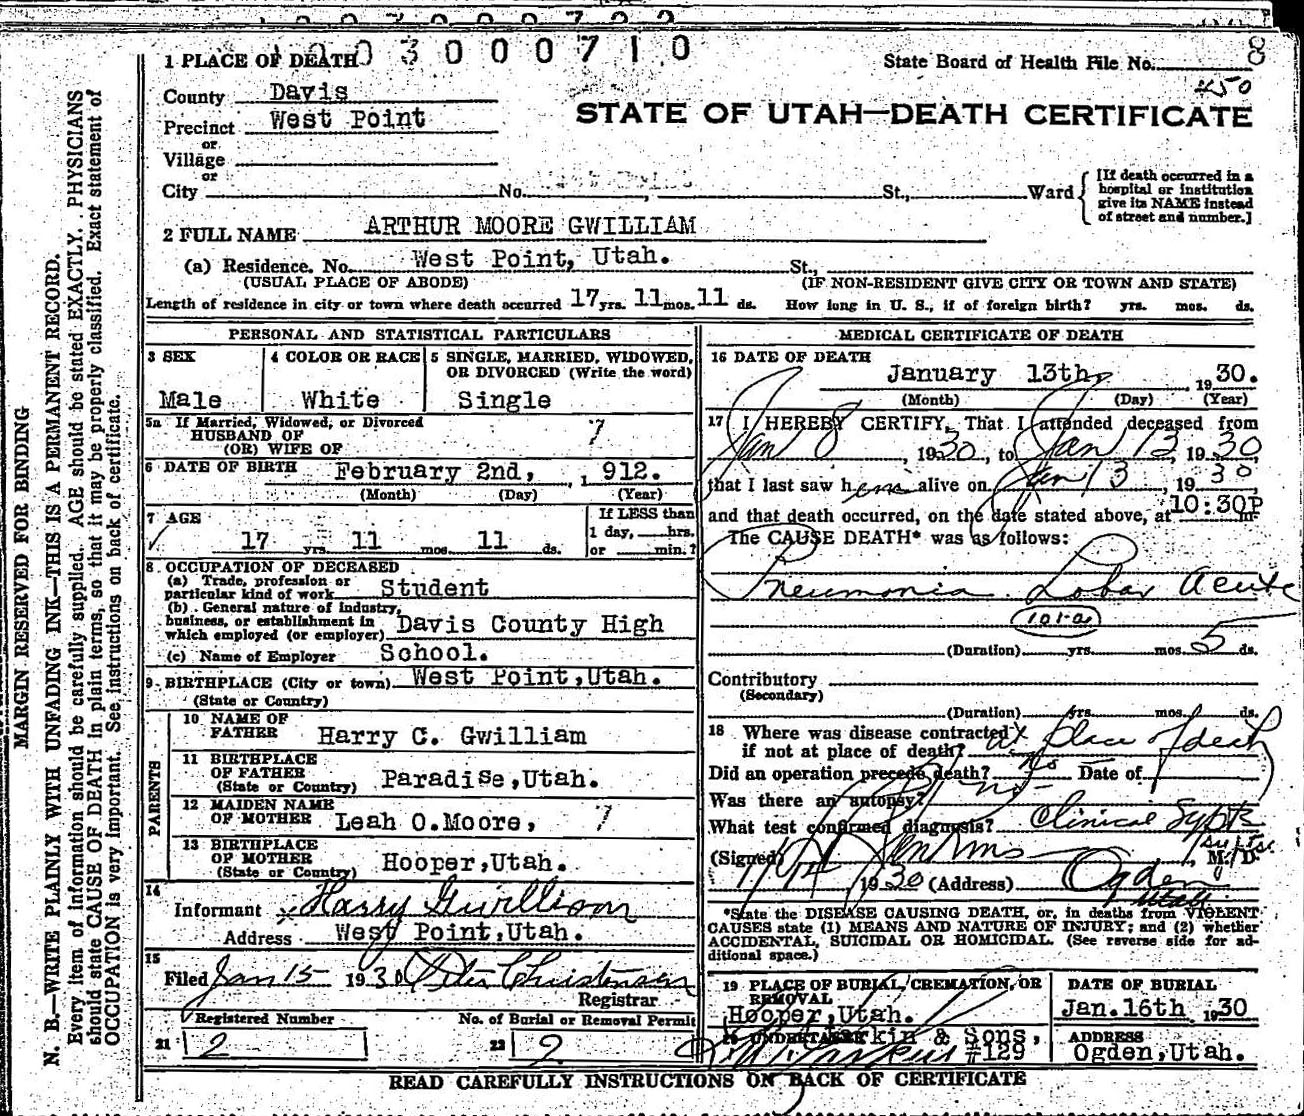 1003000710
1 PLACE OF DEATH
State Board of Health File No. 8
450
County Davis
STATE OF UTAH—DEATH CERTIFICATE
Precinct West Point
or
Village
or
City No. St., Ward
[If death occurred in a hospital or institution give its NAME instead of street and number.]
2 FULL NAME ARTHUR MOORE GWILLIAM
(a) Residence. No. West Point, Utah. St.,
(USUAL PLACE OF ABODE) (IF NON-RESIDENT GIVE CITY OR TOWN AND STATE)
Length of residence in city or town where death occurred 17 yrs. 11 mos. 11 ds. How long in U. S., if of foreign birth? yrs. mos. ds.
PERSONAL AND STATISTICAL PARTICULARS
3 SEX
Male
4 COLOR OR RACE
White
5 SINGLE, MARRIED, WIDOWED,
OR DIVORCED (Write the word)
Single
5a If Married, Widowed, or Divorced
HUSBAND OF
(OR) WIFE OF
7
6 DATE OF BIRTH February 2nd, , 1912.
(Month) (Day) (Year)
7 AGE
17 yrs. 11 mos. 11 ds.
If LESS than
1 day, hrs.
or min.?
8 OCCUPATION OF DECEASED
(a) Trade, profession or
particular kind of work Student
(b) General nature of industry,
business, or establishment in
which employed (or employer) Davis County High
(c) Name of Employer School.
9 BIRTHPLACE (City or town) West Point, Utah.
(State or Country)
PARENTS
10 NAME OF
FATHER Harry C. Gwilliam
11 BIRTHPLACE
OF FATHER
(State or Country) Paradise, Utah.
12 MAIDEN NAME
OF MOTHER Leah O. Moore, 7
13 BIRTHPLACE
OF MOTHER
(State or Country) Hooper, Utah.
14
Informant x Harry Gwilliam
Address West Point, Utah.
15
Filed Jan 15 1930 Peter Christensen
Registrar
Registered Number No. of Burial or Removal Permit
21 2 22 2
MEDICAL CERTIFICATE OF DEATH
16 DATE OF DEATH
January 13th, 1930.
(Month) (Day) (Year)
17 I HEREBY CERTIFY, That I attended deceased from
Jan 8, 1930, to Jan 13, 1930
that I last saw him alive on Jan 13, 1930
and that death occurred, on the date stated above, at 10:30P m.
The CAUSE DEATH* was as follows:
Pneumonia Lobar acute
101-a
(Duration) yrs. mos. 5 ds.
Contributory
(Secondary)
(Duration) yrs. mos. ds.
18 Where was disease contracted
if not at place of death? at place of death
Did an operation precede death? No Date of
Was there an autopsy? no
What test confirmed diagnosis? Clinical
(Signed) Jenkins M. D.
1930 (Address) Ogden
Utah
*State the DISEASE CAUSING DEATH, or, in deaths from VIOLENT
CAUSES state (1) MEANS AND NATURE OF INJURY; and (2) whether
ACCIDENTAL, SUICIDAL OR HOMICIDAL. (See reverse side for ad-
ditional space.)
19 PLACE OF BURIAL, CREMATION, OR
REMOVAL
Hooper, Utah.
DATE OF BURIAL
Jan. 16th 1930
20 UNDERTAKER Larkin & Sons,
#129
ADDRESS
Ogden, Utah.
READ CAREFULLY INSTRUCTIONS ON BACK OF CERTIFICATE
MARGIN RESERVED FOR BINDING
N. B.—WRITE PLAINLY WITH UNFADING INK—THIS IS A PERMANENT RECORD.
Every item of information should be carefully supplied. AGE should be stated EXACTLY. PHYSICIANS
should state CAUSE OF DEATH in plain terms, so that it may be properly classified. Exact statement of
OCCUPATION is very important. See instructions on back of certificate.